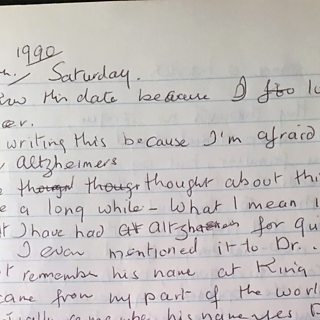 1990
Saturday.
this date because I too
er.
writing this because I'm afraid
altzheimers
though though thought about this
a long while - What I mean i
I have had at altzheimers for qui
I even mentioned it to Dr..
remember his name at King
came from my part of the worl
his name yes D